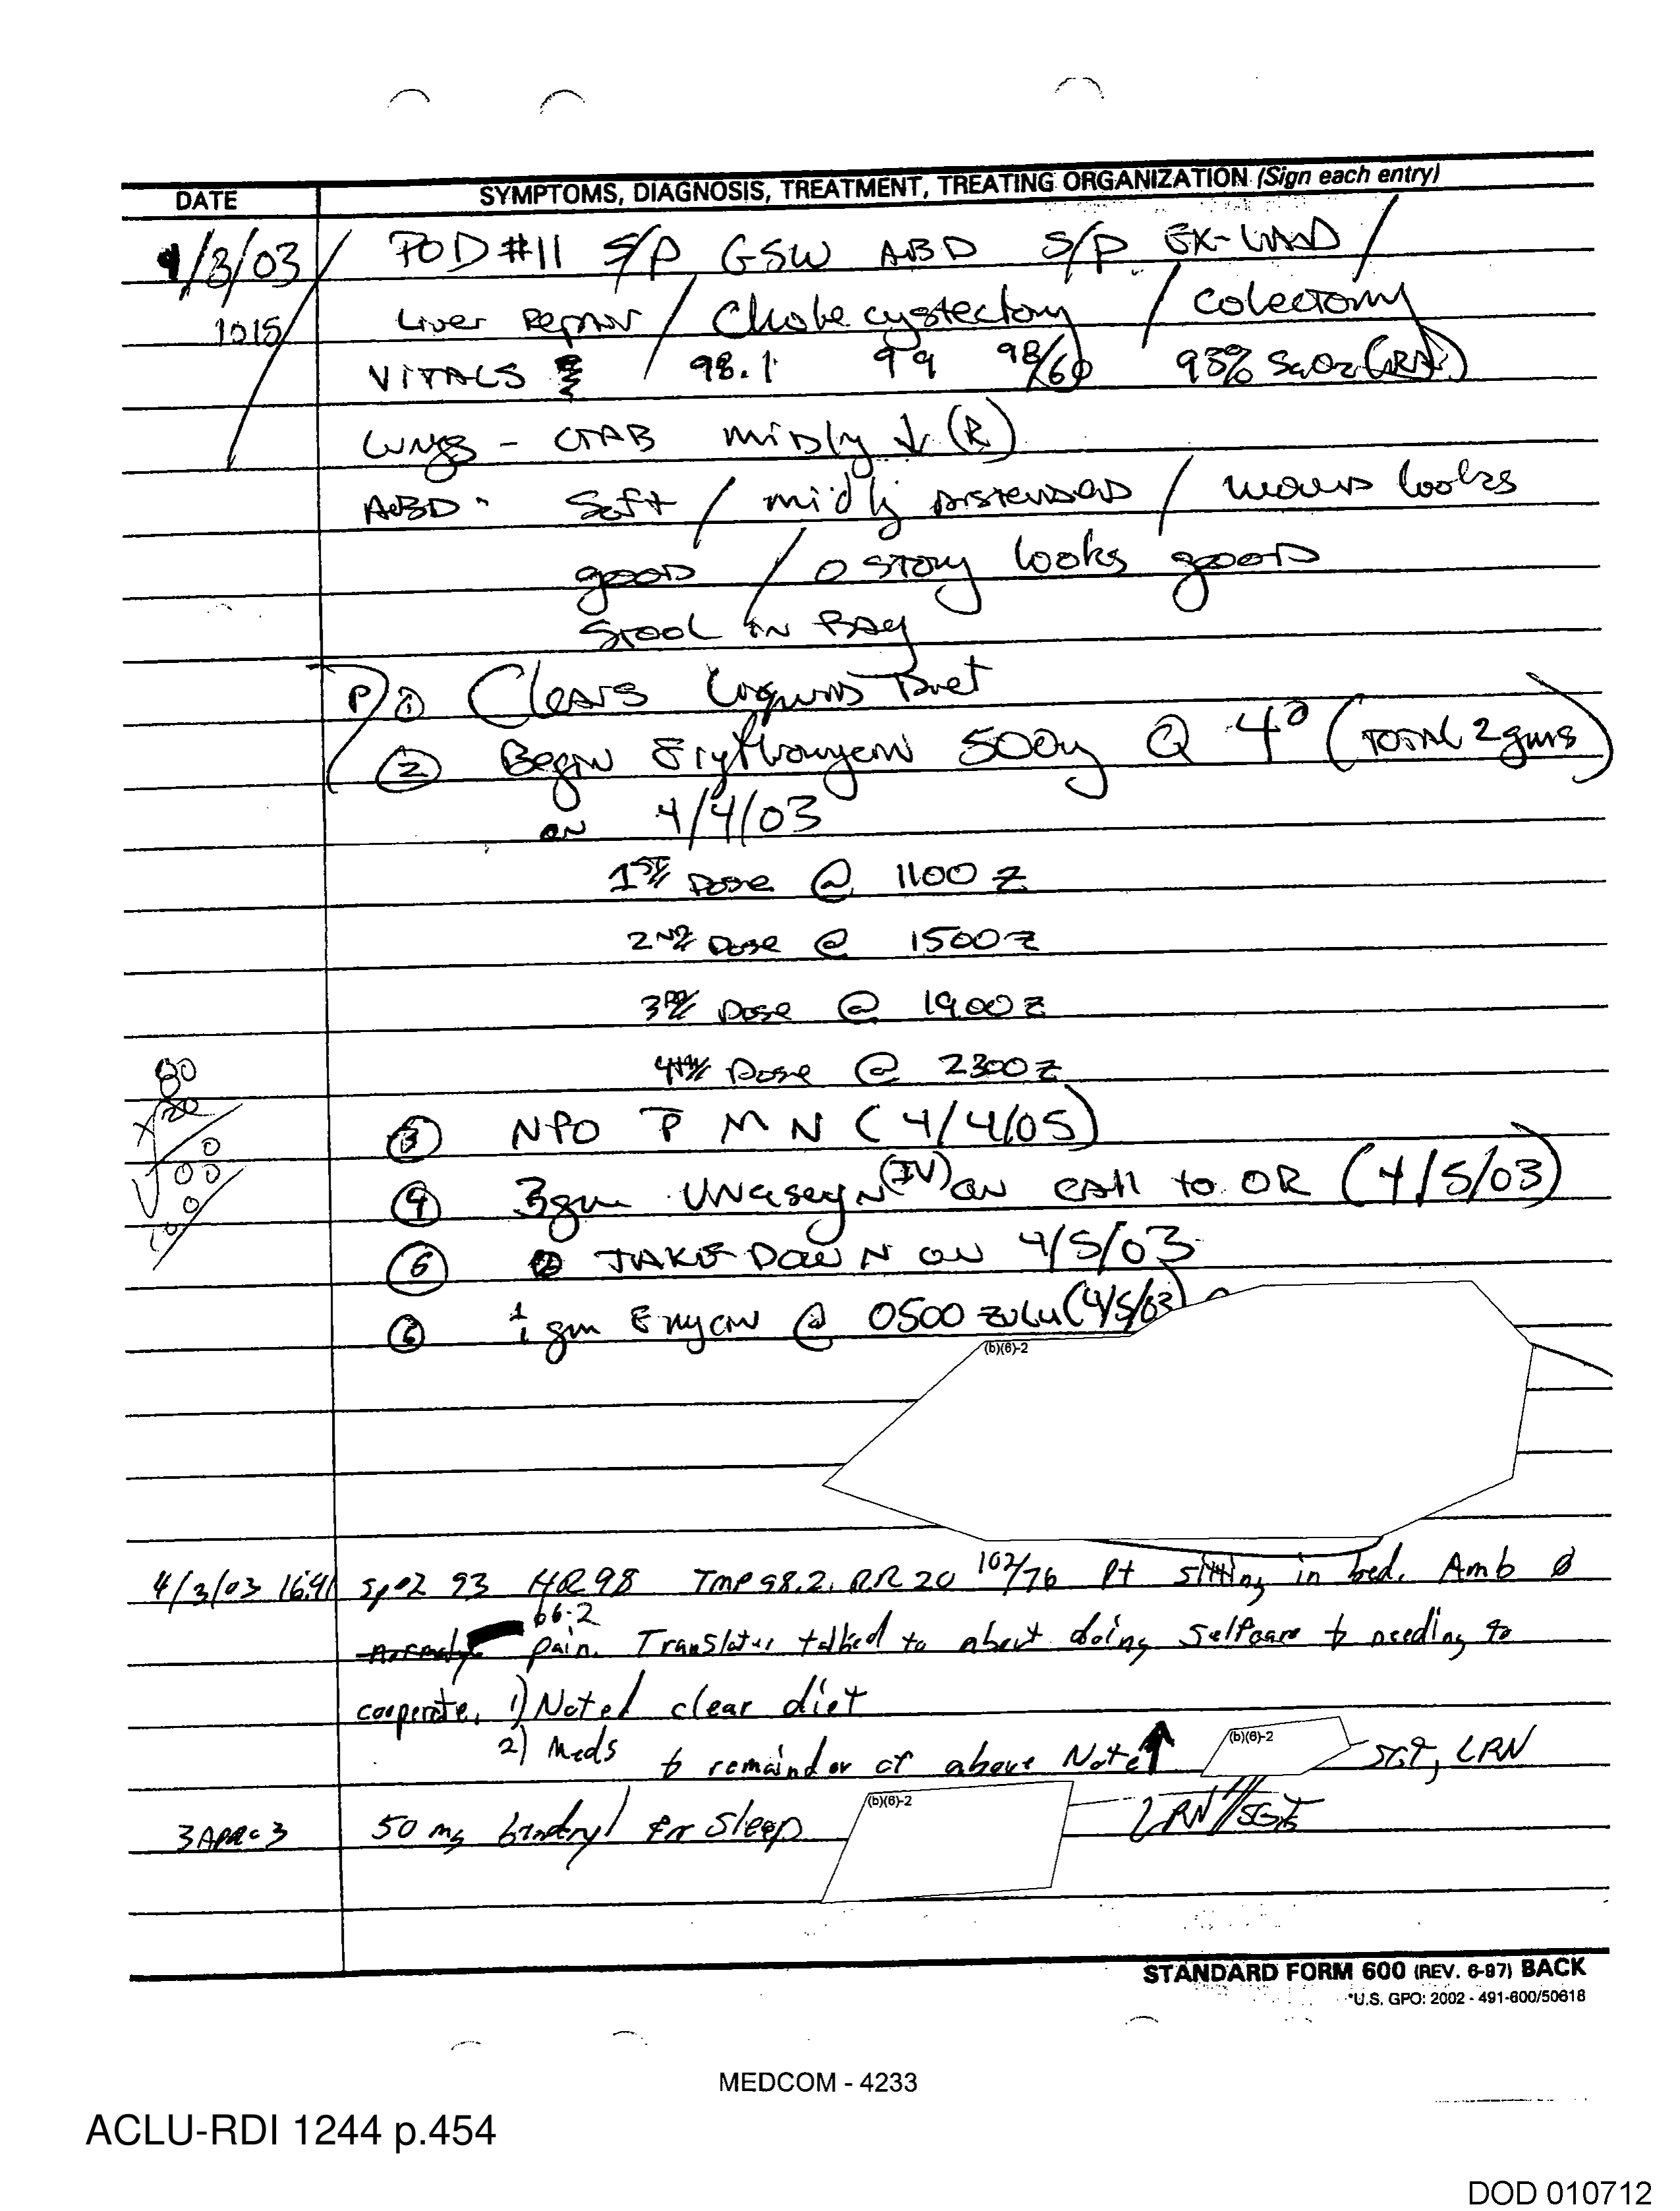 DATE SYMPTOMS, DIAGNOSIS, TREATMENT, TREATING ORGANIZATION (Sign each entry)
4/3/03 POD #11 S/P GSW ABD S/P EX-LAP /
1015 Liver Repair / Cholecystectomy / Colectomy
VITALS / 98.1 99 98/60 93% SaO2 (RA)
LUNGS - CTAB mildly ↓ (R)
ABD - Soft / midly DISTENDED / wound looks
good / ostomy looks good
STOOL IN BAG
P/ ① Clears Liquids Diet
② Begin Erythromycin 500g Q 4° (TOTAL 2 gms)
ON 4/4/03
1ST Dose @ 1100 Z
2ND Dose @ 1500 Z
3RD Dose @ 1900 Z
4TH Dose @ 2300 Z
③ NPO P MN (4/4/03)
④ 3gm Unasyn (IV) on call to OR (4/5/03)
⑤ TAKE DOWN ON 4/5/03
⑥ 1 gm Emycin @ 0500 zulu (4/5/03)
(b)(6)-2
4/3/03 1641 SpO2 93 HR 98 Tmp 98.2. RR 20 102/76 Pt sitting in bed. Amb ø
b6-2
pain. Translator talked to about doing selfcare & needing to
cooperate. 1) Noted clear diet
2) Meds & remainder of above Note ↑ (b)(6)-2 SGT, LRN
3 APR 03 50 mg benadryl for sleep (b)(6)-2 LRN // SGT
STANDARD FORM 600 (REV. 6-97) BACK
*U.S. GPO: 2002 - 491-600/50618
MEDCOM - 4233
ACLU-RDI 1244 p.454
DOD 010712